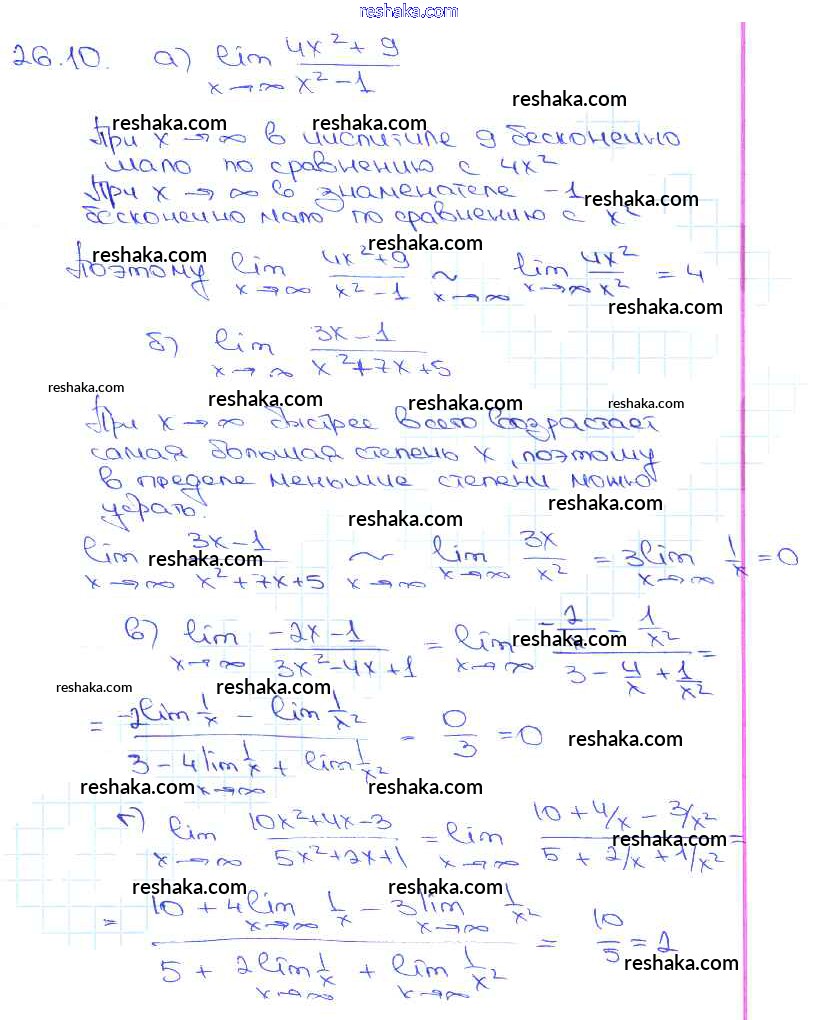 reshaka.com
26.10. а) lim (4x² + 9)/(x² − 1) x→∞
reshaka.com
reshaka.com reshaka.com
При x→∞ в числителе 9 бесконечно
мало по сравнению с 4x²
При x→∞ в знаменателе −1 reshaka.com
бесконечно мало по сравнению с x²
reshaka.com reshaka.com
Поэтому lim x→∞ (4x²+9)/(x²−1) ~ x→∞ lim x→∞ 4x²/x² = 4
reshaka.com
б) lim x→∞ (3x−1)/(x²+7x+5)
reshaka.com
reshaka.com reshaka.com reshaka.com
При x→∞ быстрее всего возрастает
самая большая степень x, поэтому
в пределе меньшие степени можно
убрать. reshaka.com
reshaka.com
lim x→∞ (3x−1)/(x²+7x+5) ~ x→∞ lim x→∞ 3x/x² = 3 lim x→∞ 1/x = 0
reshaka.com
в) lim x→∞ (−2x−1)/(3x²−4x+1) = lim x→∞ (−2/x − 1/x²)/(3 − 4/x + 1/x²) =
reshaka.com
reshaka.com reshaka.com
= (−2 lim 1/x − lim 1/x²)/(3 − 4 lim x→∞ 1/x + lim 1/x²) = 0/3 = 0 reshaka.com
reshaka.com reshaka.com
г) lim x→∞ (10x²+4x−3)/(5x²+2x+1) = lim x→∞ (10 + 4/x − 3/x²)/(5 + 2/x + 1/x²) =
reshaka.com
reshaka.com reshaka.com
= (10 + 4 lim x→∞ 1/x − 3 lim x→∞ 1/x²)/(5 + 2 lim x→∞ 1/x + lim x→∞ 1/x²) = 10/5 = 2
reshaka.com